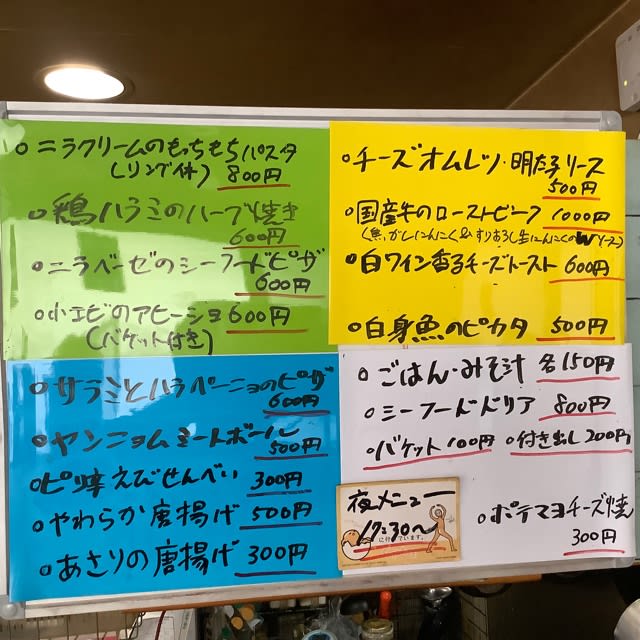 ○ニラクリームのもっちもちパスタ
(リング付) 800円
○鶏ハラミのハーブ焼き
600円
○ニラベーゼのシーフードピザ
600円
○小エビのアヒージョ 600円
(バケット付き)
○サラミとハラペーニョのピザ
600円
○ヤンニョムミートボール
500円
○ピリ辛えびせんべい 300円
○やわらか唐揚げ 500円
○あさりの唐揚げ 300円
○チーズオムレツ・明太子ソース
500円
○国産牛のローストビーフ 1000円
(焦がしにんにく&すりおろし生にんにくのWソース)
○白ワイン香るチーズトースト 600円
○白身魚のピカタ 500円
○ごはん・みそ汁 各150円
○シーフードドリア 800円
○バケット 100円 ○付き出し 200円
夜メニュー
17:30〜
に行っています。
○ポテマヨチーズ焼
300円